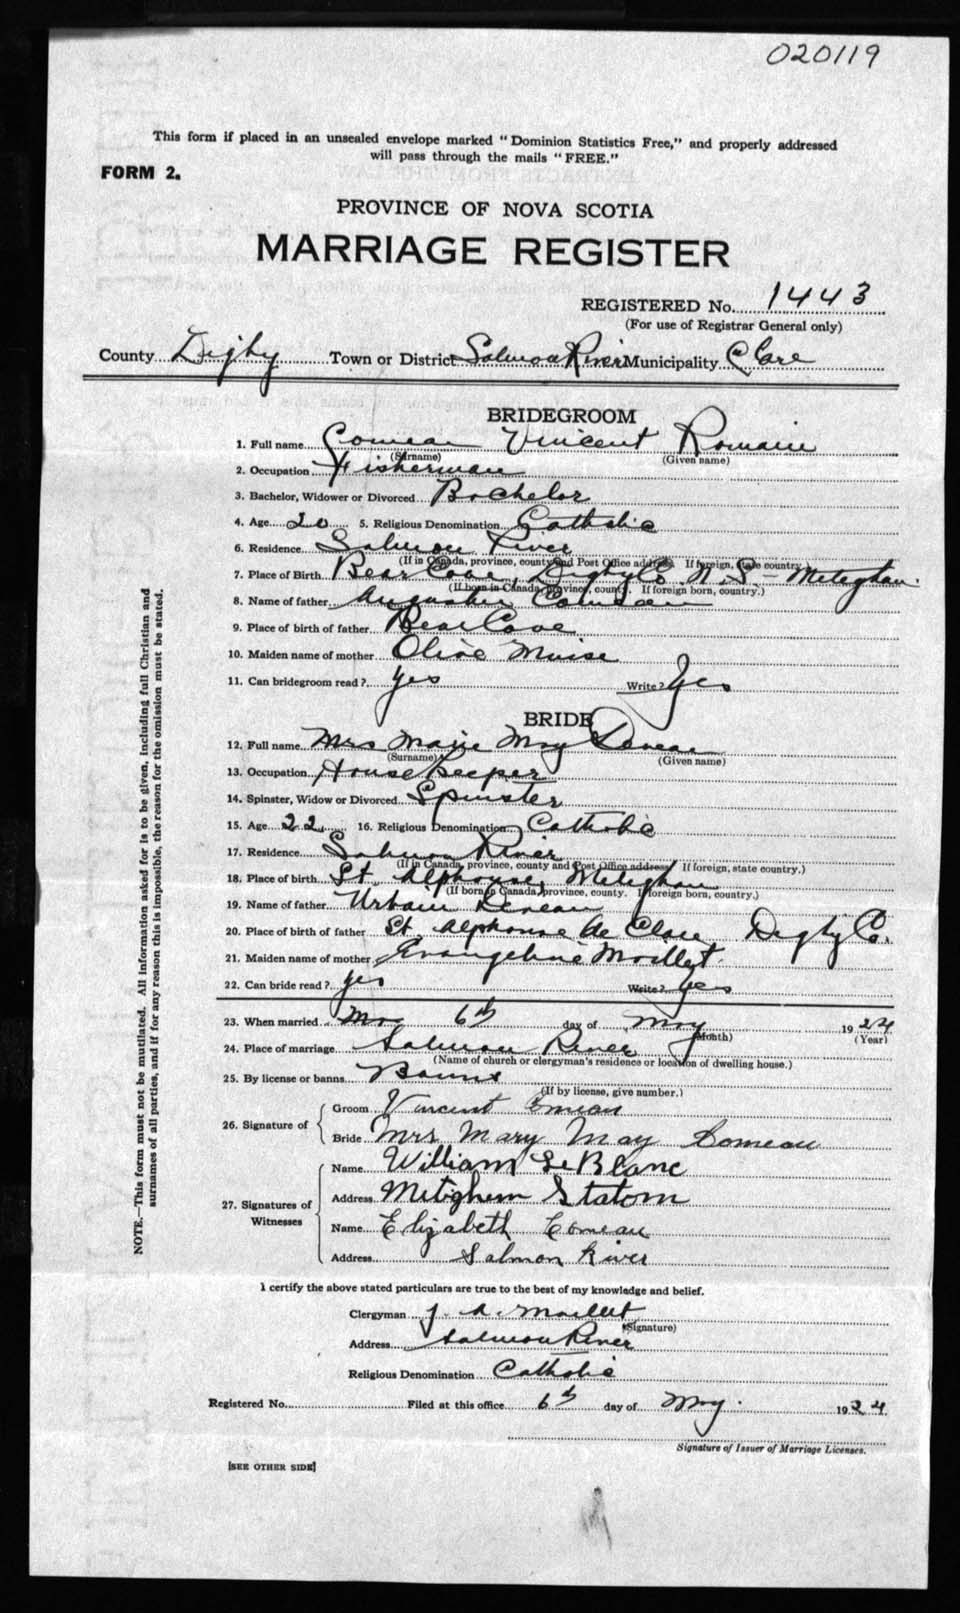 020119
This form if placed in an unsealed envelope marked "Dominion Statistics Free," and properly addressed
will pass through the mails "FREE."
FORM 2.
PROVINCE OF NOVA SCOTIA
MARRIAGE REGISTER
REGISTERED No. 1443
(For use of Registrar General only)
County Digby Town or District Salmon River Municipality Clare
BRIDEGROOM
1. Full name Comeau Vincent Romain
(Surname) (Given name)
2. Occupation Fisherman
3. Bachelor, Widower or Divorced Bachelor
4. Age 20 5. Religious Denomination Catholic
6. Residence Salmon River
(If in Canada, province, county and Post Office address. If foreign, state country.)
7. Place of Birth Bear Cove, Digby Co. N. S. - Meteghan.
(If born in Canada, province, county. If foreign born, country.)
8. Name of father Augustin Comeau
9. Place of birth of father Bear Cove
10. Maiden name of mother Olive Muise
11. Can bridegroom read? yes Write? Yes
BRIDE
12. Full name Mrs Marie May Deveau
(Surname) (Given name)
13. Occupation House Keeper
14. Spinster, Widow or Divorced Spinster
15. Age 22 16. Religious Denomination Catholic
17. Residence Salmon River
(If in Canada, province, county and Post Office address. If foreign, state country.)
18. Place of birth St. Alphonse, Meteghan
(If born in Canada, province, county. If foreign born, country.)
19. Name of father Urbain Deveau
20. Place of birth of father St. Alphonse de Clare Digby Co.
21. Maiden name of mother Evangeline Maillet.
22. Can bride read? yes Write? yes
23. When married 6th day of May 1924
(Month) (Year)
24. Place of marriage Salmon River
(Name of church or clergyman's residence or location of dwelling house.)
25. By license or banns Banns
(If by license, give number.)
26. Signature of
Groom Vincent Comeau
Bride Mrs Mary May Comeau
27. Signatures of Witnesses
Name William LeBlanc
Address Mitighem Statom
Name Elizabeth Comeau
Address Salmon River
I certify the above stated particulars are true to the best of my knowledge and belief.
Clergyman J. A. Maillet
(Signature)
Address Salmon River
Religious Denomination Catholic
Registered No. Filed at this office 6th day of May. 1924
Signature of Issuer of Marriage Licenses.
[SEE OTHER SIDE]
NOTE.—This form must not be mutilated. All information asked for is to be given, including full Christian and
surnames of all parties, and if for any reason this is impossible, the reason for the omission must be stated.